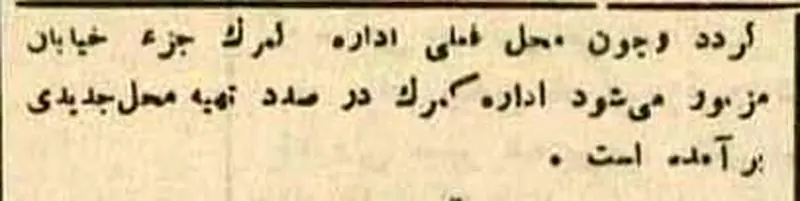 گردد وچون محل فعلی اداره گمرك جزء خیابان
مزبور می‌شود اداره گمرك در صدد تهیه محل جدیدی
بر آمده است .